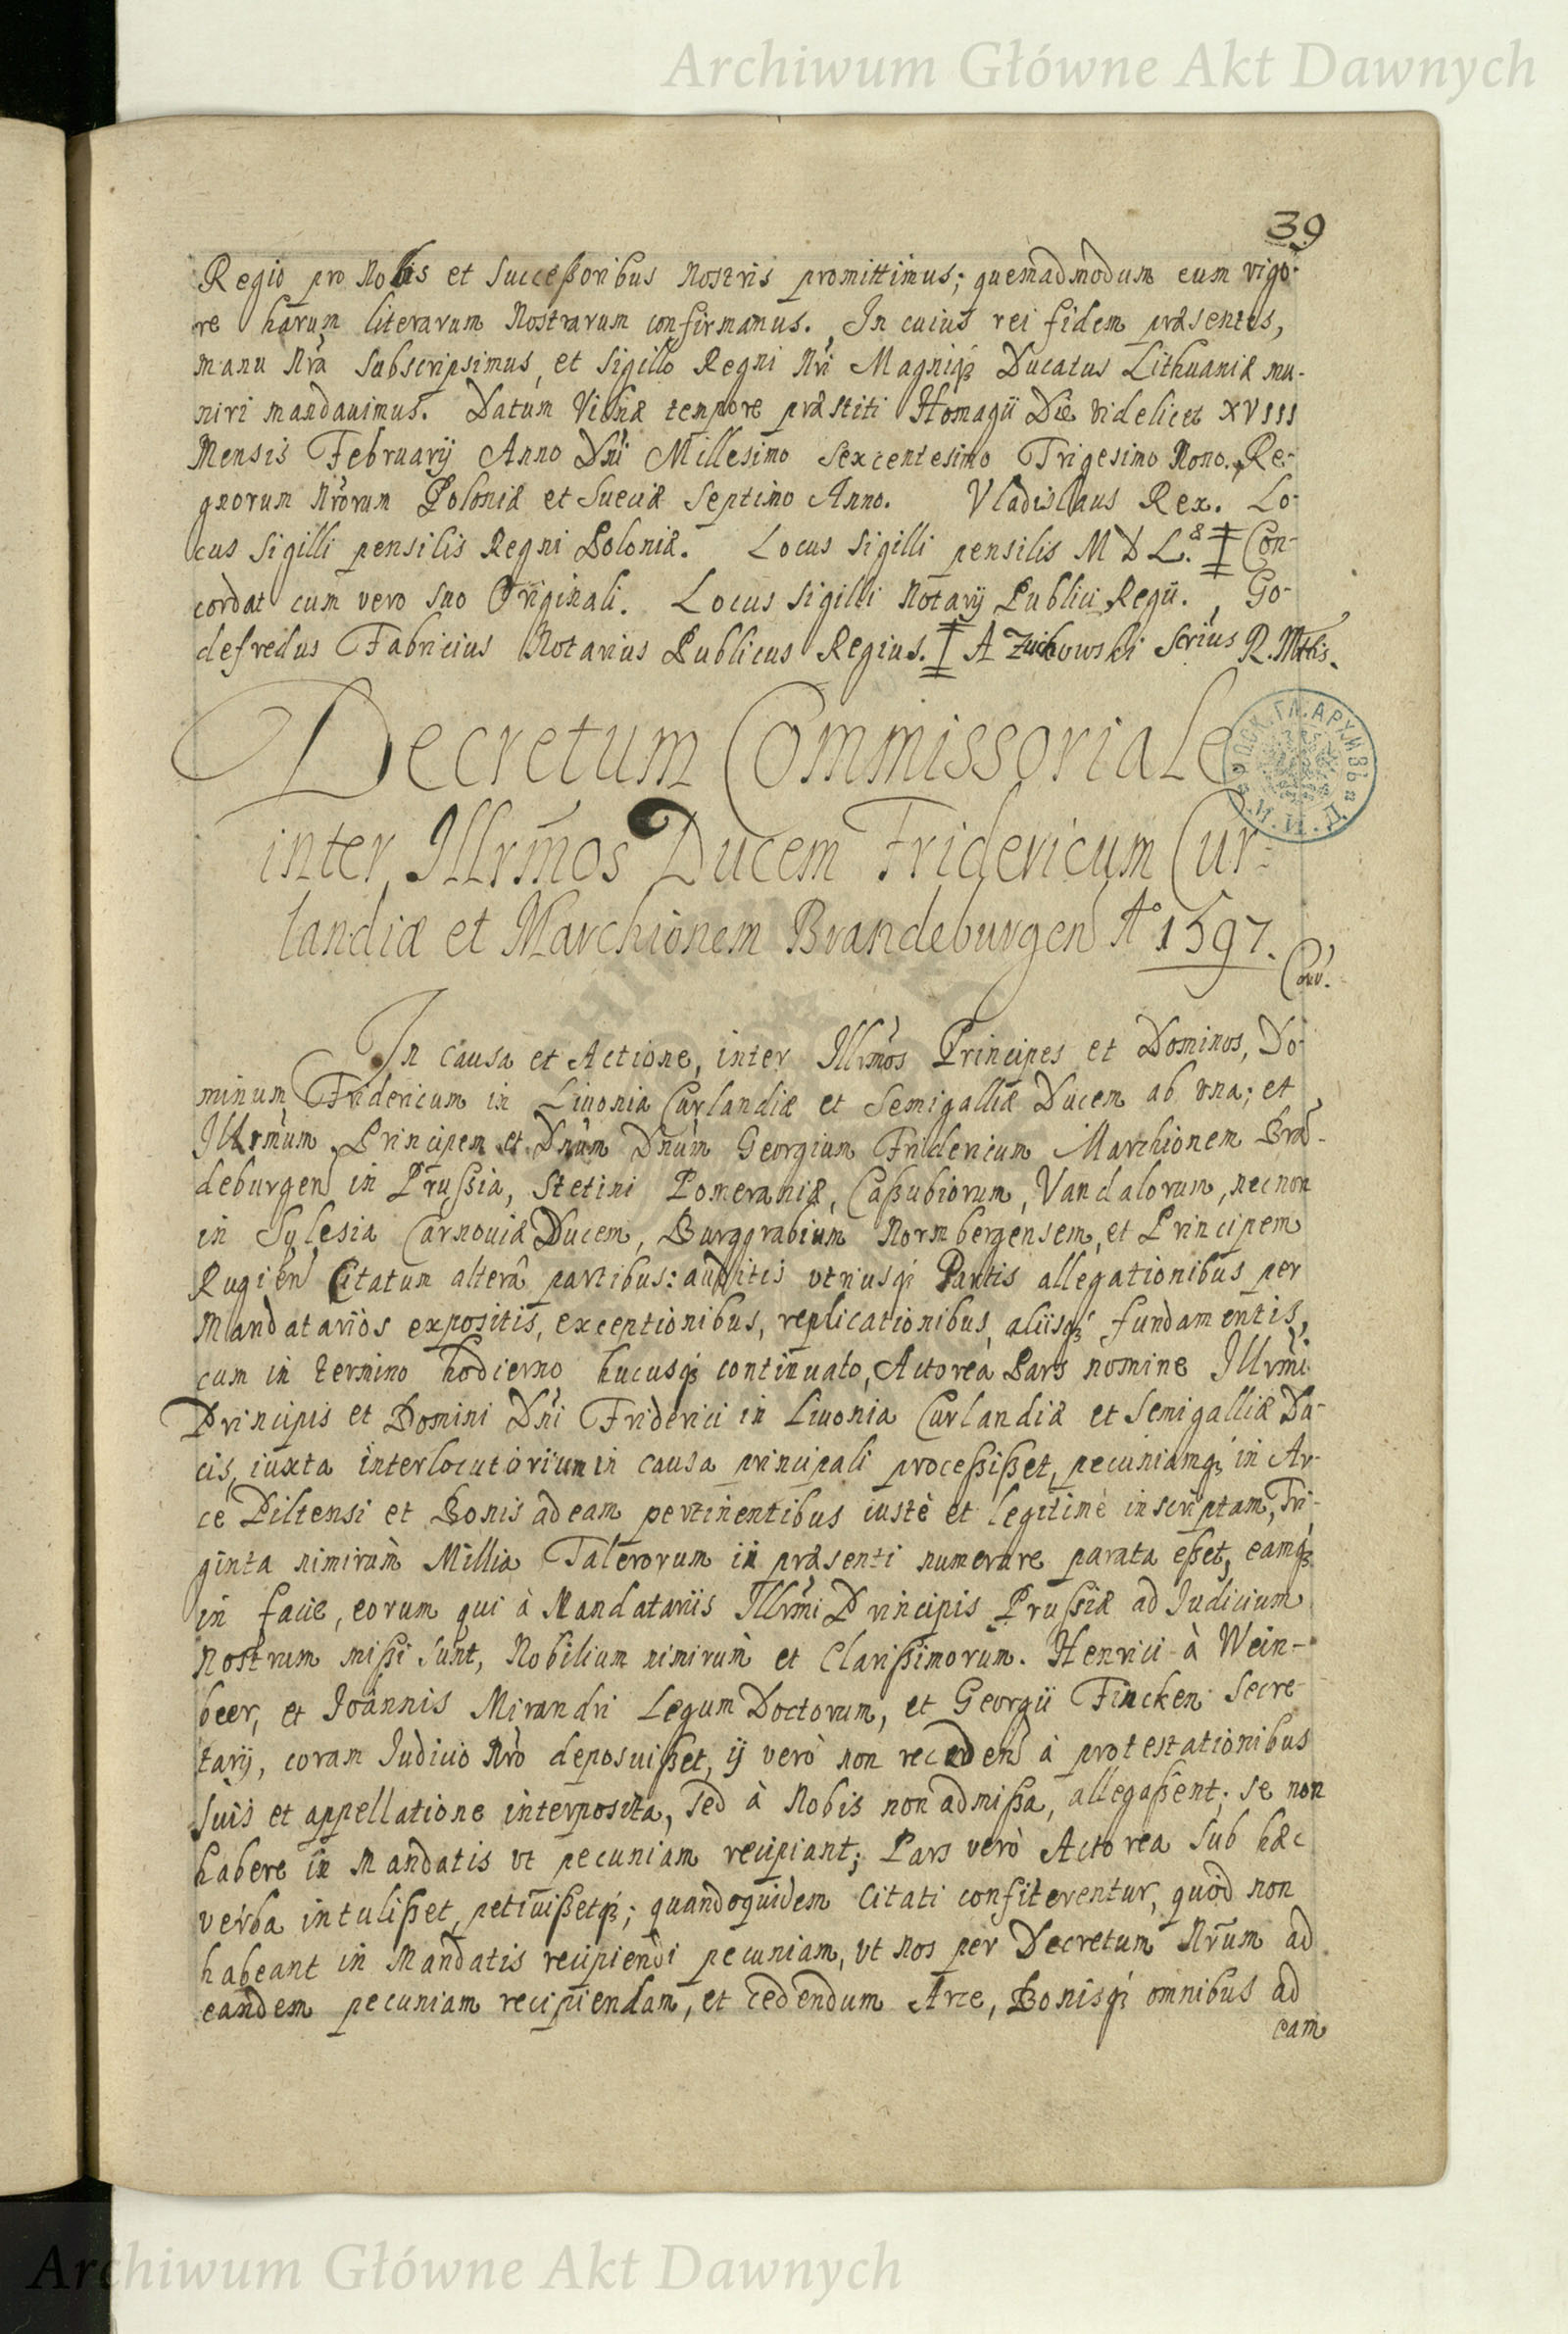 Archiwum Główne Akt Dawnych
39
Regio pro Nobis et Succeßoribus Nostris promittimus; quemadmodum eum vigo-
re harum literarum Nostrarum confirmamus. In cuius rei fidem præsentes,
manu Nrã subscripsimus, et Sigillo Regni Nri Magniqȝ Ducatus Lithuaniæ mu-
niri mandauimus. Datum Vilnæ tempore præstiti Homagii Die videlicet XVIII
Mensis Februarij Anno Dni Millesimo Sexcentesimo Trigesimo Nono. Re-
gnorum Nrorum Poloniæ et Sueciæ Septimo Anno. Vladislaus Rex. Lo-
cus Sigilli pensilis Regni Poloniæ. Locus Sigilli pensilis M D L. Con-
cordat cum vero suo Originali. Locus Sigilli Notarij Publici Regii. Go-
defredus Fabricius Notarius Publicus Regius. A Zuchowski Scrius R. Mttis.
Decretum Commissoriale
inter Illrmos Ducem Fridericum Cur-
landiæ et Marchionem Brandeburgen Aº 1597.
Cur.
In causa et Actione, inter Illrmos Principes et Dominos, Do-
minum Fridericum in Liuonia Curlandiæ et Semigalliæ Ducem ab vna; et
Illrmum Principem et Dnum Dnum Georgium Fridericum Marchionem Bran-
deburgen in Prußia, Stetini Pomeraniæ, Caßubiorum, Vandalorum, necnon
in Sylesia Carnouiæ Ducem, Burggrabium Normbergensem, et Principem
Rugien Citatum alterâ partibus: auditis vtriusqȝ Partis allegationibus per
Mandatarios expositis, exceptionibus, replicationibus, aliisqȝ fundamentis,
cum in termino hodierno hucusqȝ continuato, Actorea Pars nomine Illrmi
Principis et Domini Dni Friderici in Liuonia Curlandiæ et Semigalliæ Du-
cis, iuxta interlocutorium in causa principali proceßißet, pecuniamqȝ in Ar-
ce Piltensi et Bonis ad eam pertinentibus iustè et legitimè inscriptam, Tri-
ginta nimirum Millia Talerorum in præsenti numerare parata eßet, eamqȝ
in facie, eorum qui à Mandatariis Illrmi Principis Prußiæ ad Iudicium
Nostrum mißi sunt, Nobilium nimirum et Clarißimorum. Henrici à Wein-
beer, et Ioannis Mirandri Legum Doctorum, et Georgii Fincken Secre-
tarij, coram Iudicio Nro deposuißet, ij verò non recedend à protestationibus
suis et appellatione interposita, sed à Nobis non admißa, allegaßent; se non
habere in Mandatis vt pecuniam recipiant; Pars verò Actorea sub hæc
verba intulißet, petiuißetqȝ; quandoquidem Citati confiterentur, quod non
habeant in Mandatis recipiendi pecuniam, vt Nos per Decretum Nrum ad
eandem pecuniam recipiendam, et cedendum Arce, Bonisqȝ omnibus ad
eam
Archiwum Główne Akt Dawnych